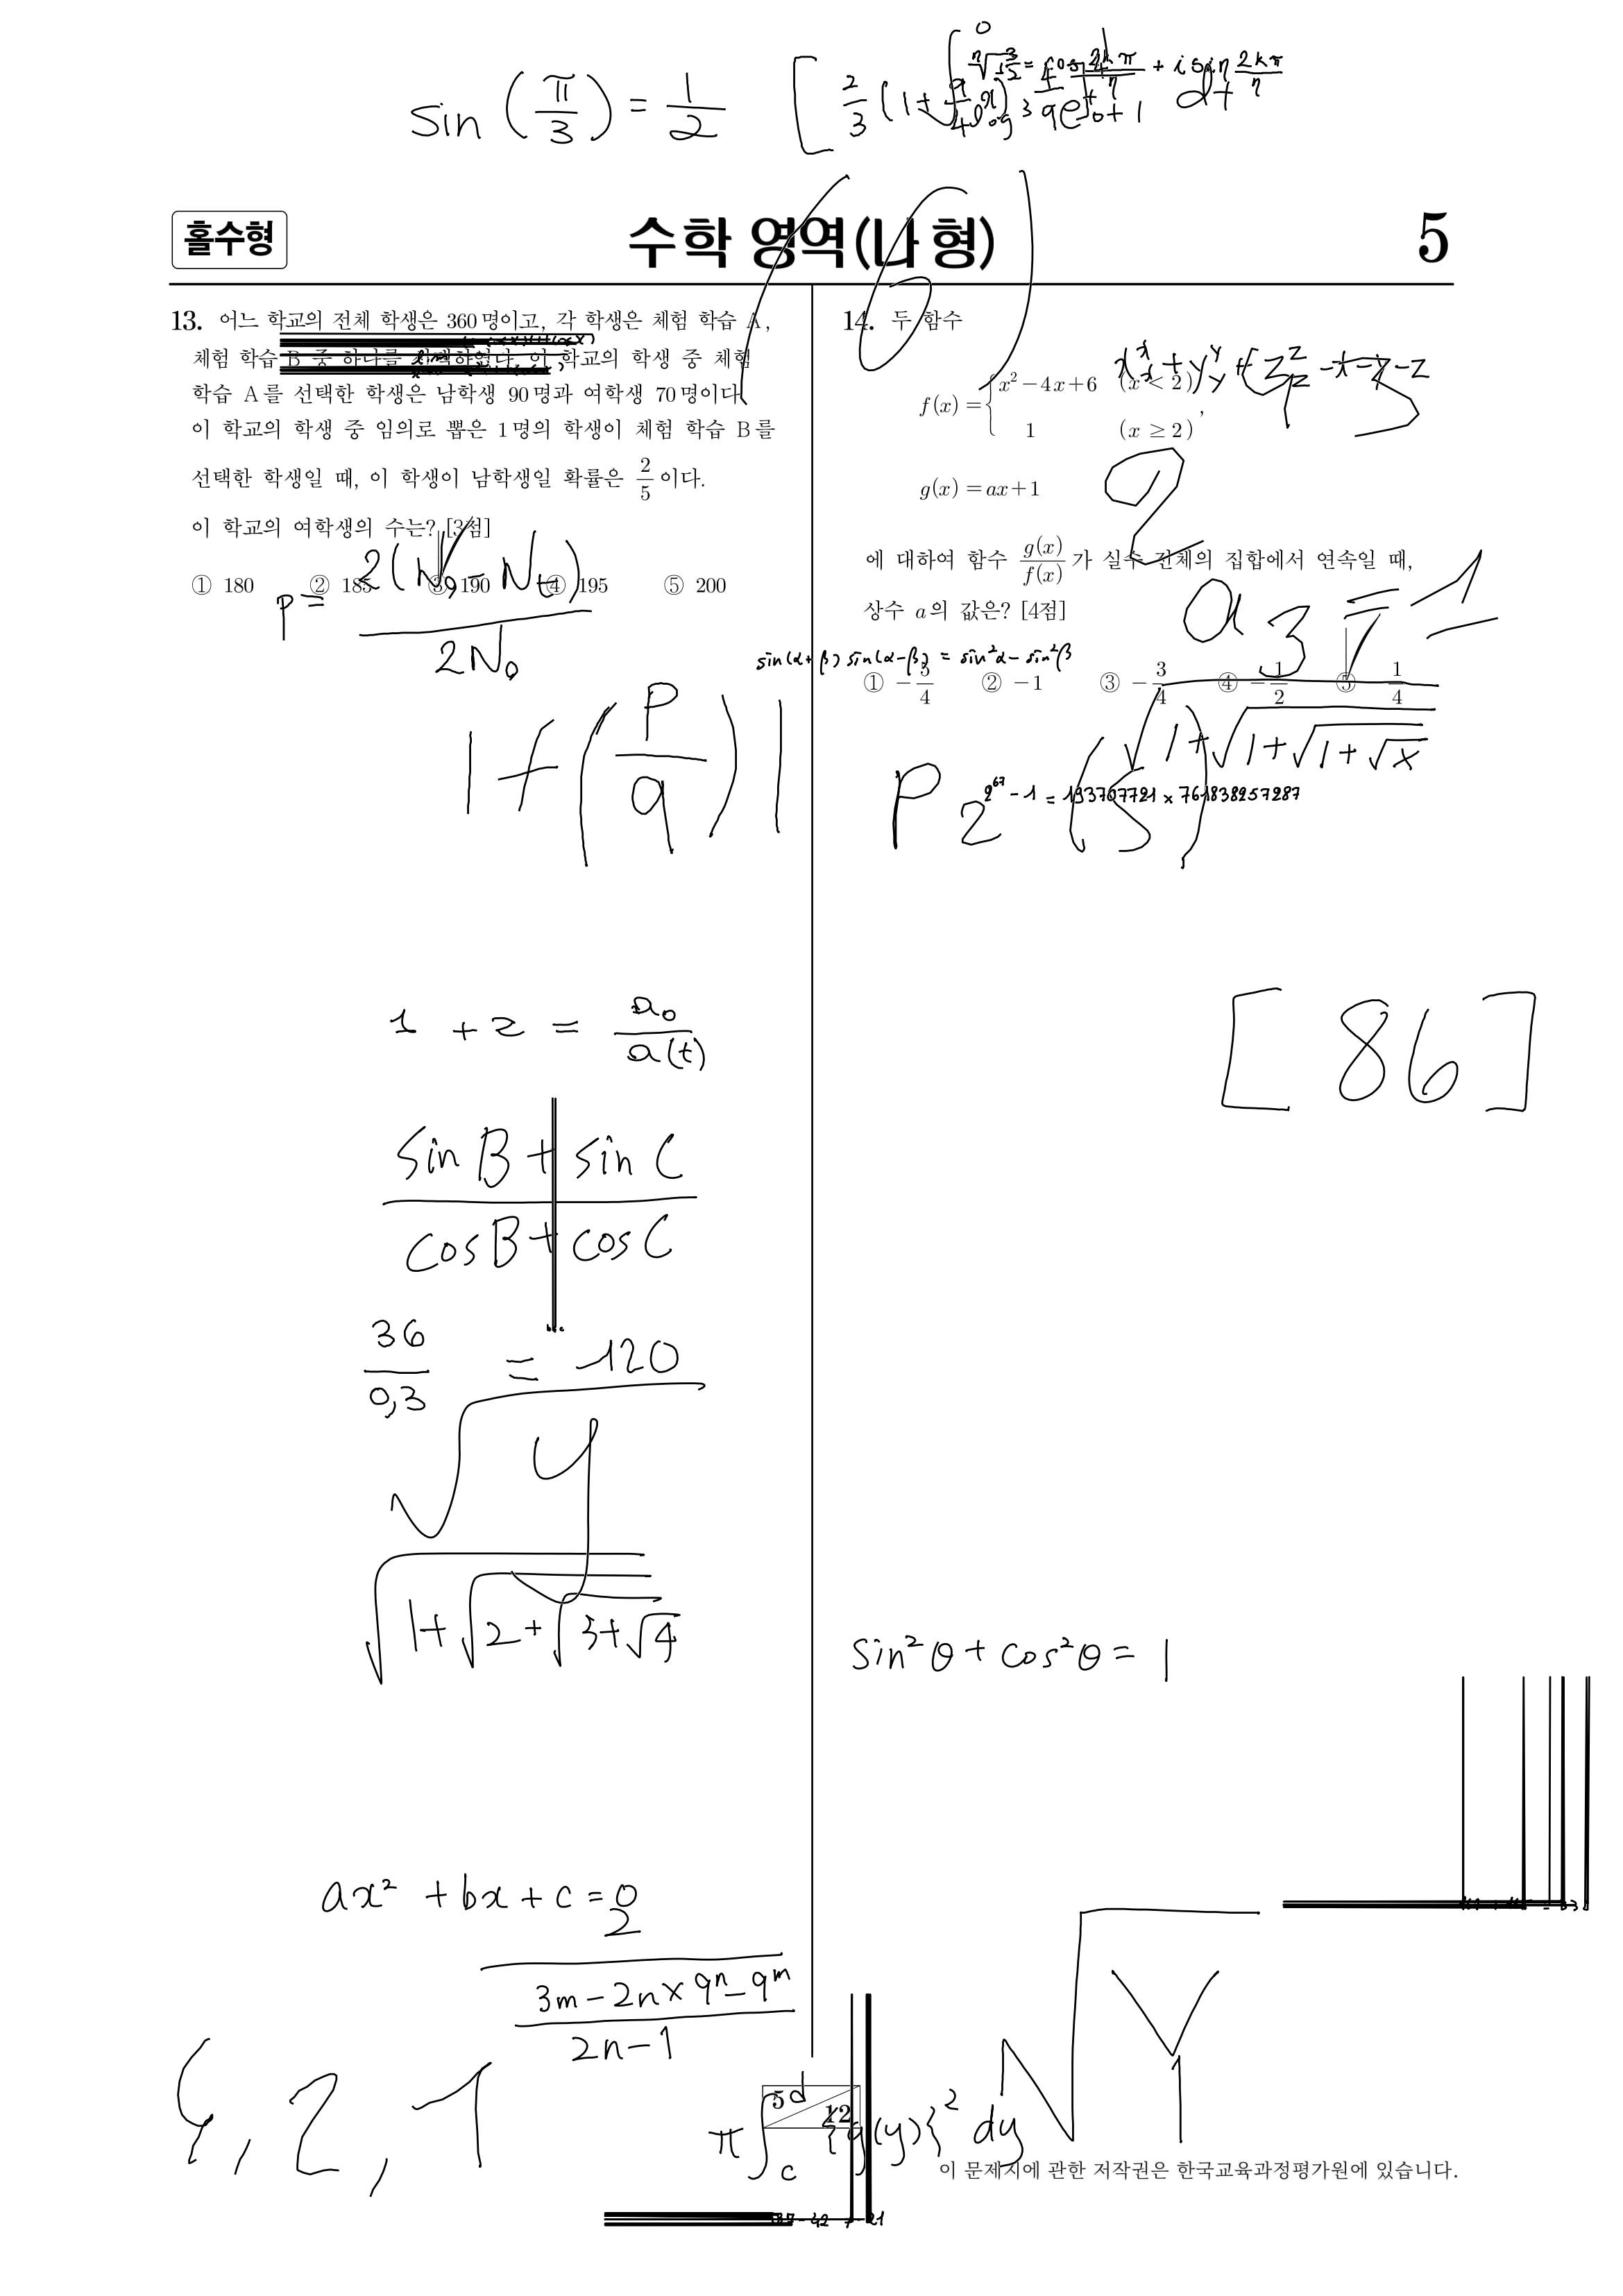 sin(π/3) = 1/2
홀수형
수학 영역(나 형)
5
13. 어느 학교의 전체 학생은 360명이고, 각 학생은 체험 학습 A,
체험 학습 B 중 하나를 선택하였다. 이 학교의 학생 중 체험
학습 A를 선택한 학생은 남학생 90명과 여학생 70명이다.
이 학교의 학생 중 임의로 뽑은 1명의 학생이 체험 학습 B를
선택한 학생일 때, 이 학생이 남학생일 확률은 2/5 이다.
이 학교의 여학생의 수는? [3점]
① 180 ② 185 ③ 190 ④ 195 ⑤ 200
p = 2(N₀ - Nt) / 2N₀
|f(p/q)|
1 + z = a₀/a(t)
sin B + sin C / cos B + cos C
36/0,3 = 120
√y
√1+√2+√3+√4
ax² + bx + c = 0
2 / 3m-2n×9ⁿ-9ᵐ / 2n-1
, 2, 1
(6)
14. 두 함수
x² - 4x + 6 (x < 2)
f(x) = { ,
1 (x ≥ 2)
g(x) = ax + 1
에 대하여 함수 g(x)/f(x) 가 실수 전체의 집합에서 연속일 때,
상수 a의 값은? [4점]
sin(α+β) sin(α-β) = sin²α - sin²β
① -5/4 ② -1 ③ -3/4 ④ -1/2 ⑤ -1/4
√1+√1+√1+√x
2⁶⁷ - 1 = 193707721 × 761838257287
[86]
sin²θ + cos²θ = 1
√Y
π∫ d c {g(y)}² dy
5
12
이 문제지에 관한 저작권은 한국교육과정평가원에 있습니다.